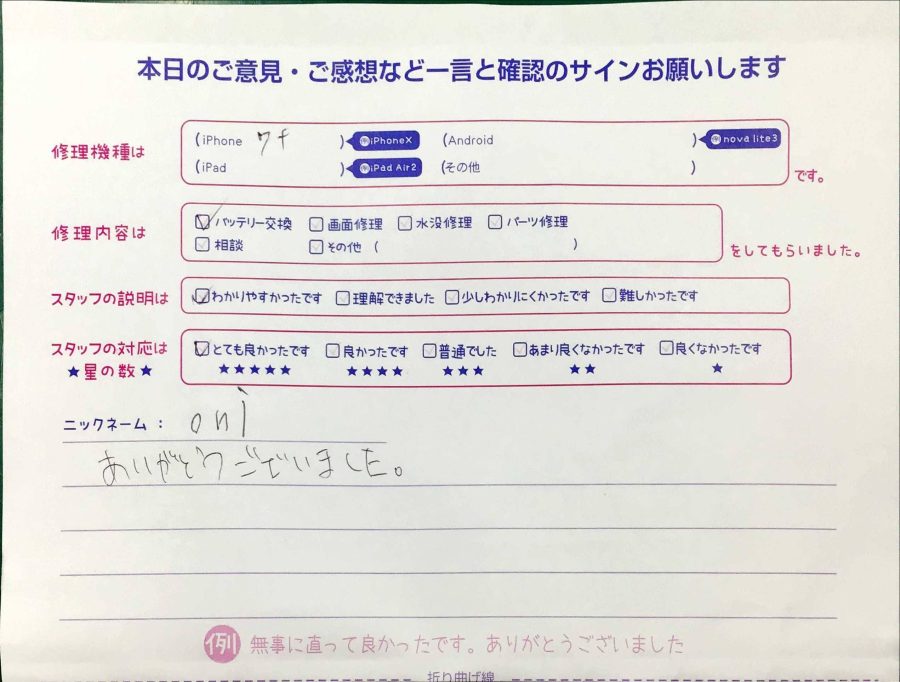 本日のご意見・ご感想など一言と確認のサインお願いします
修理機種は (iPhone 7+ ) iPhoneX (Android ) nova lite3
(iPad ) iPad Air2 (その他 ) です。
修理内容は バッテリー交換 画面修理 水没修理 パーツ修理
相談 その他 ( ) をしてもらいました。
スタッフの説明は わかりやすかったです 理解できました 少しわかりにくかったです 難しかったです
スタッフの対応は とても良かったです 良かったです 普通でした あまり良くなかったです 良くなかったです
★星の数★ ★★★★★ ★★★★ ★★★ ★★ ★
ニックネーム: oni
ありがとうございました。
例 無事に直って良かったです。ありがとうございました
折り曲げ線